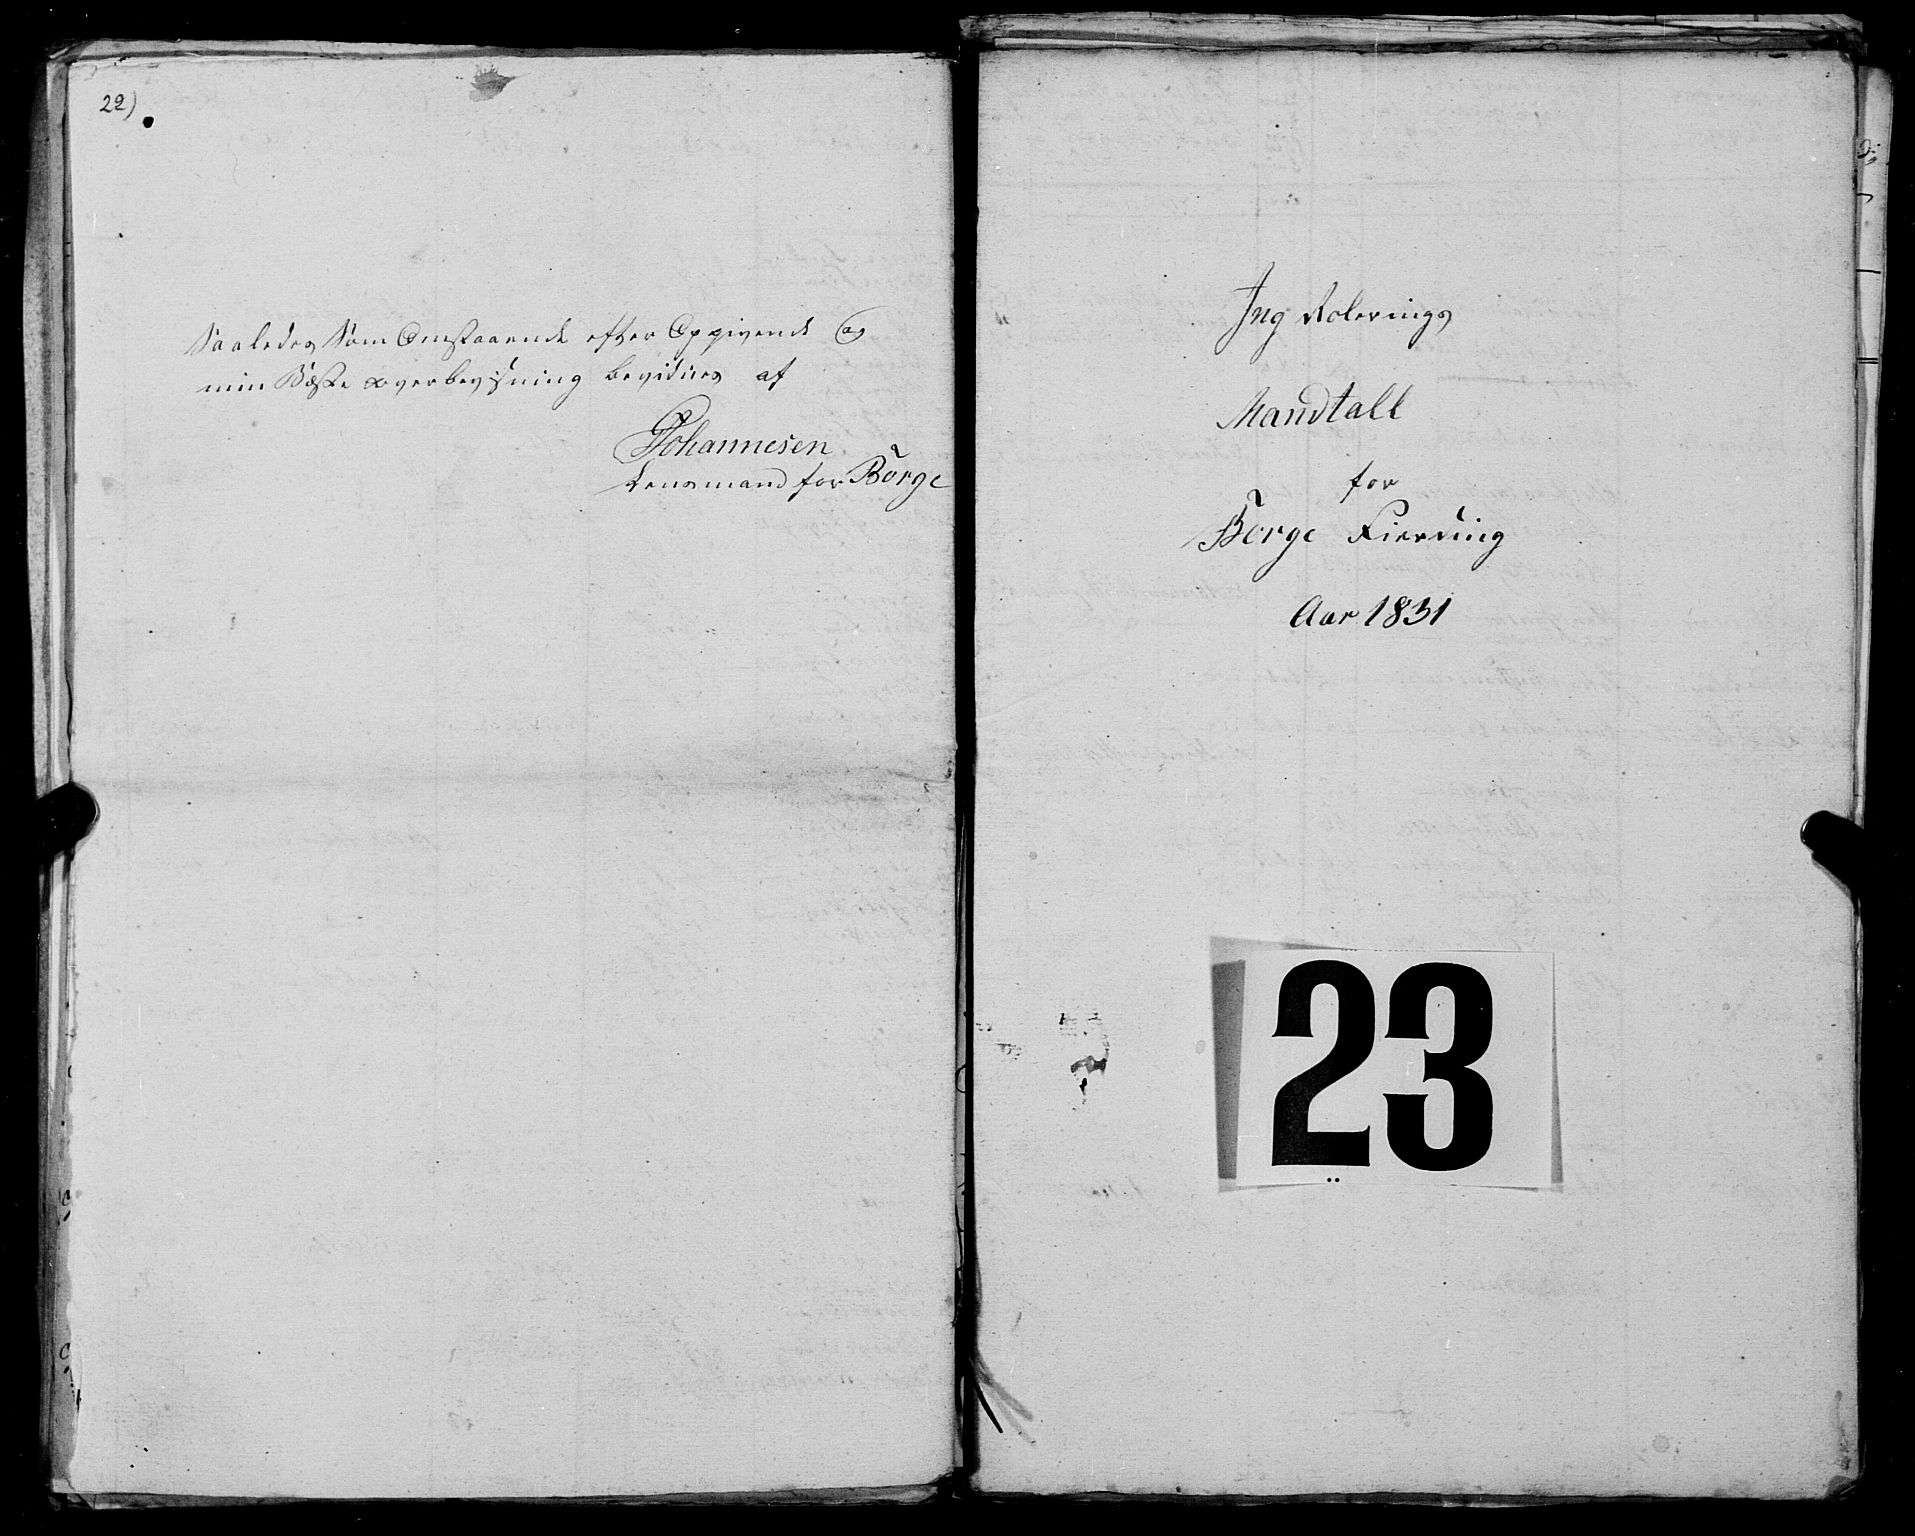 22)
Saaledes som Omstaaende efter Opgivende og
min Bæste overbevisning bevidnes af
Johannesen
Lensmand for Borge
Ing Rolerings
Mandtall
for
Borge Fierding
Aar 1831
23